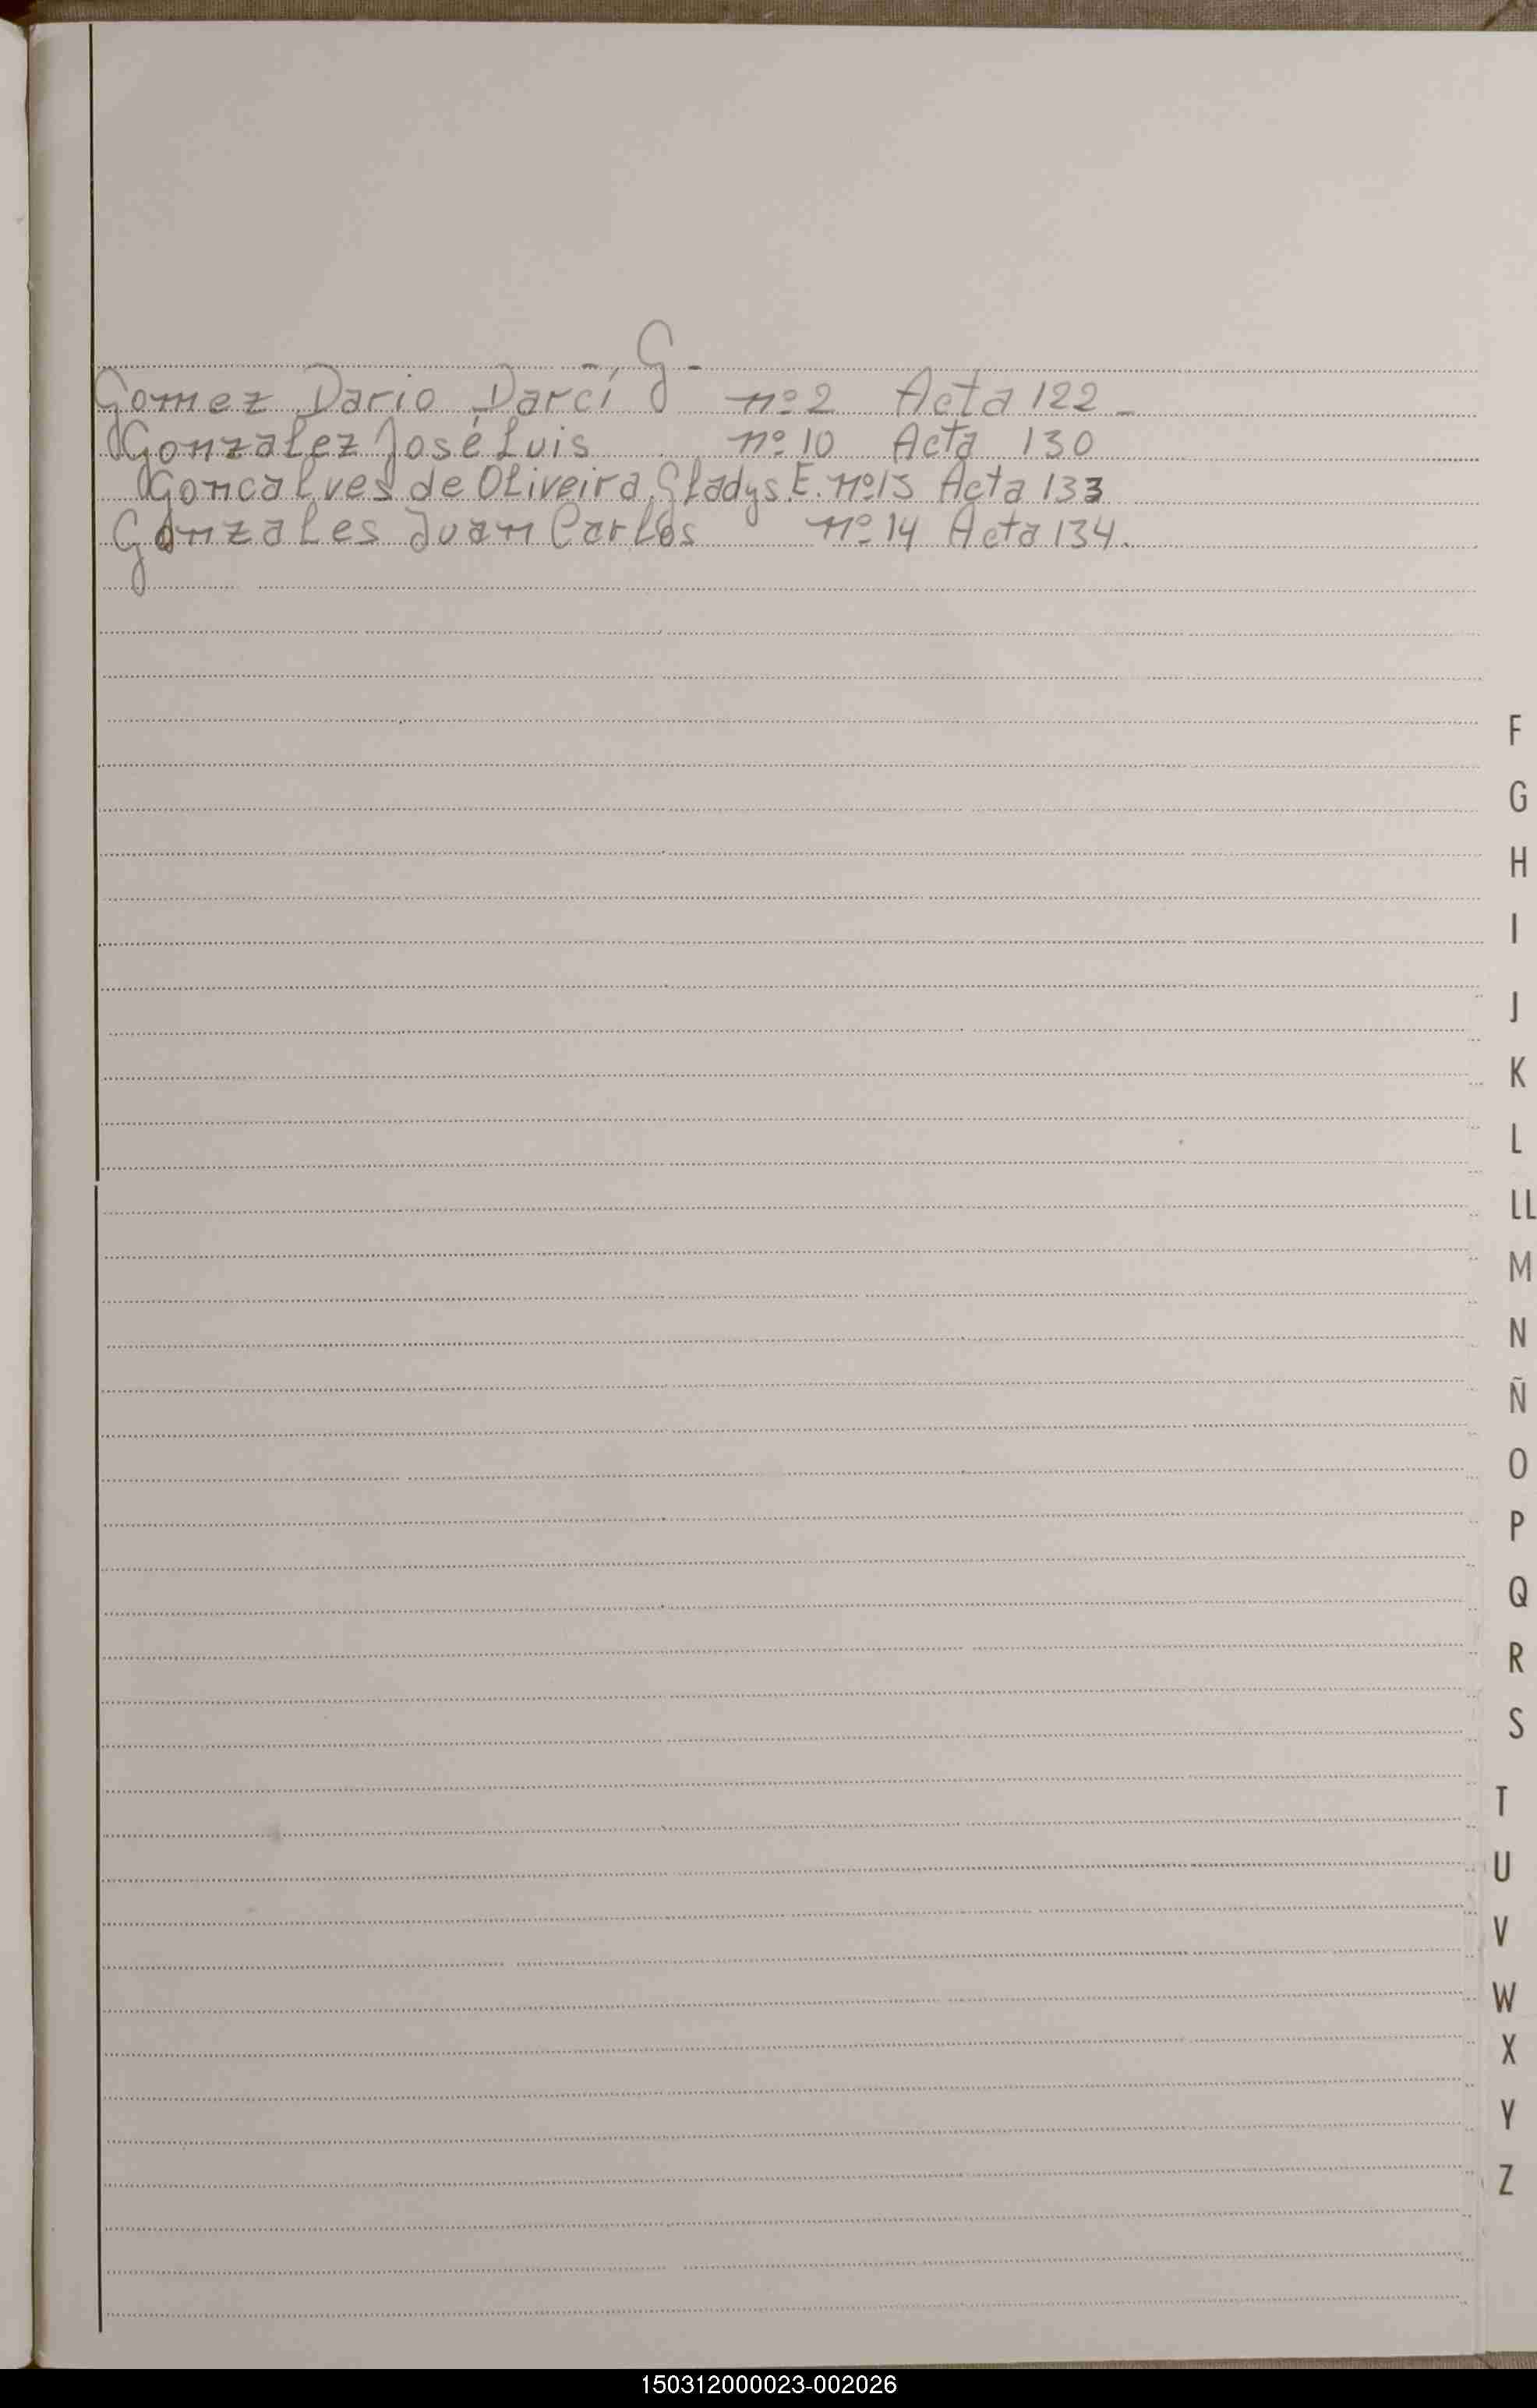 - G -
Gomez Dario Darcí nº 2 Acta 122 -
Gonzalez José Luis nº 10 Acta 130
Goncalves de Oliveira, Gladys E. nº 13 Acta 133
Gonzales Juan Carlos nº 14 Acta 134.
F
G
H
I
J
K
L
LL
M
N
Ñ
O
P
Q
R
S
T
U
V
W
X
Y
Z
150312000023-002026